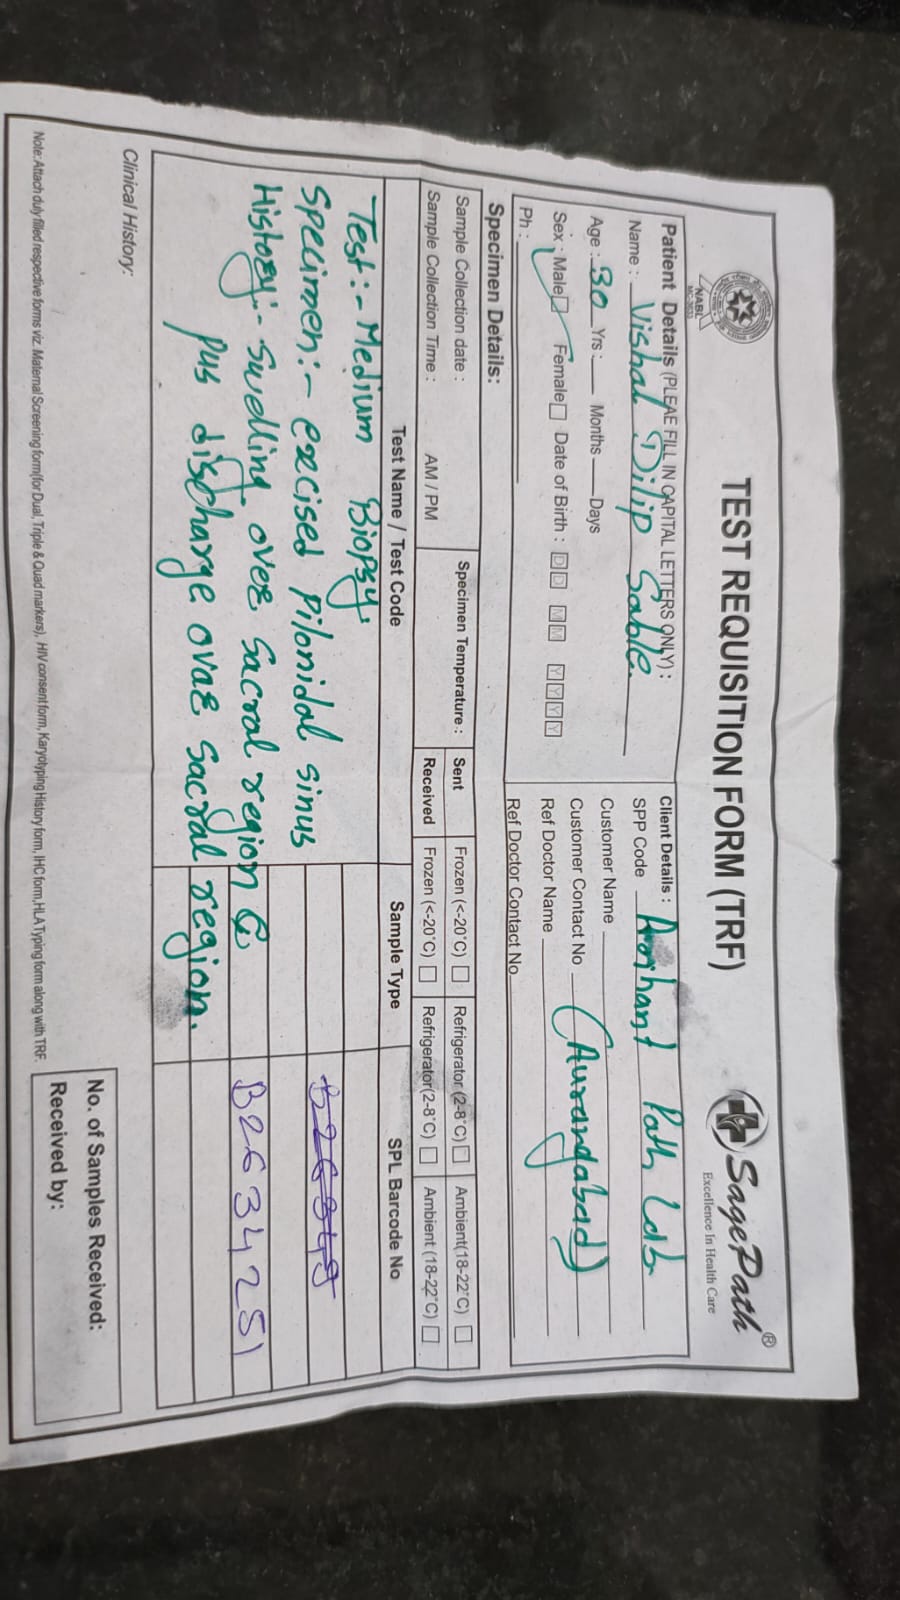 TEST REQUISITION FORM (TRF)
NABL
SagePath®
Excellence In Health Care
Patient Details (PLEAE FILL IN CAPITAL LETTERS ONLY) :
Name : Vishal Dilip Sable
Age : 30 Yrs : Months Days
Sex : Male Female Date of Birth : DD MM YYYY
Ph :
Client Details :
SPP Code Arihant Path Lab
Customer Name
Customer Contact No (Aurangabad)
Ref Doctor Name
Ref Doctor Contact No
Specimen Details:
Sample Collection date : Specimen Temperature : Sent Frozen (<-20°C) Refrigerator (2-8°C) Ambient(18-22°C)
Sample Collection Time : AM / PM Received Frozen (<-20°C) Refrigerator(2-8°C) Ambient (18-22°C)
Test Name / Test Code Sample Type SPL Barcode No
Test:- Medium Biopsy.
Specimen:- excised Pilonidal sinus
History:- Swelling over Sacral region B2634251
Pus discharge ovar Sacral region.
Clinical History:
No. of Samples Received:
Received by:
Note:Attach duly filled respective forms viz. Maternal Screening form(for Dual, Triple & Quad markers), HIV consent form, Karyotyping History form, IHC form,HLA Typing form along with TRF.